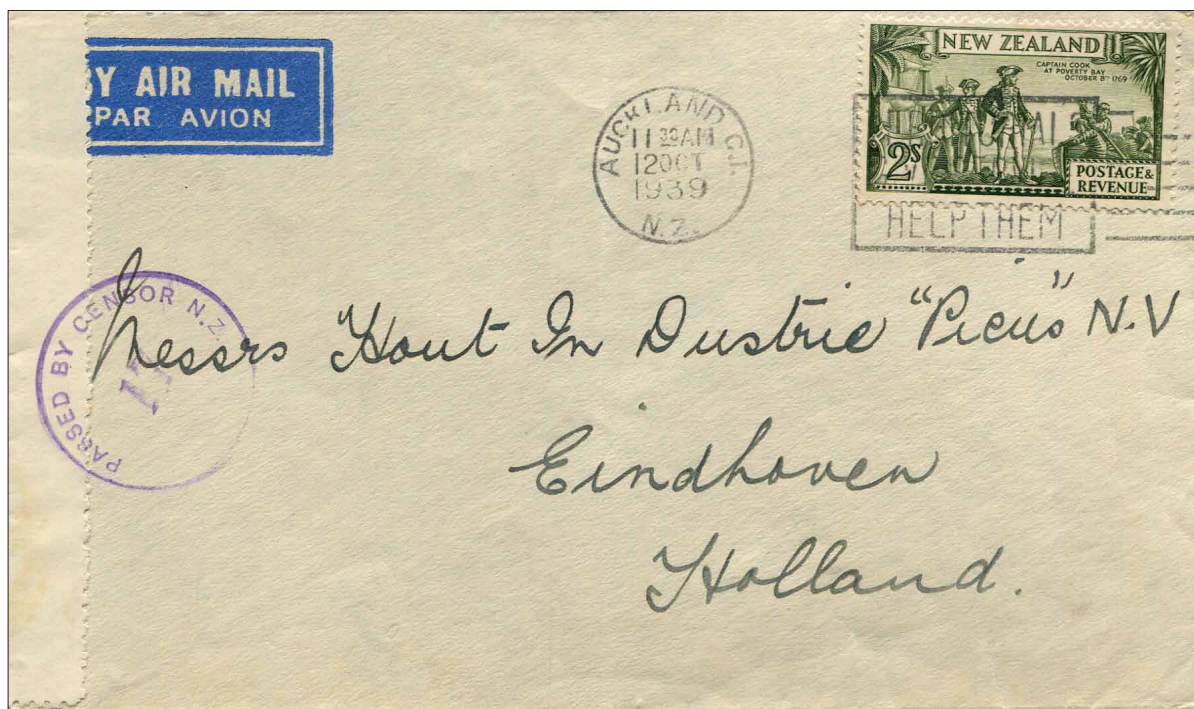 Y AIR MAIL
PAR AVION
AUCKLAND C.1.
11 30 AM
12 OCT
1939
N.Z.
NEW ZEALAND
CAPTAIN COOK
AT POVERTY BAY
OCTOBER 8TH 1769
2S
POSTAGE &
REVENUE
HELP THEM
PASSED BY CENSOR N.Z.
Messrs Hout In Dustrie "Picus" N.V
Eindhoven
Holland.